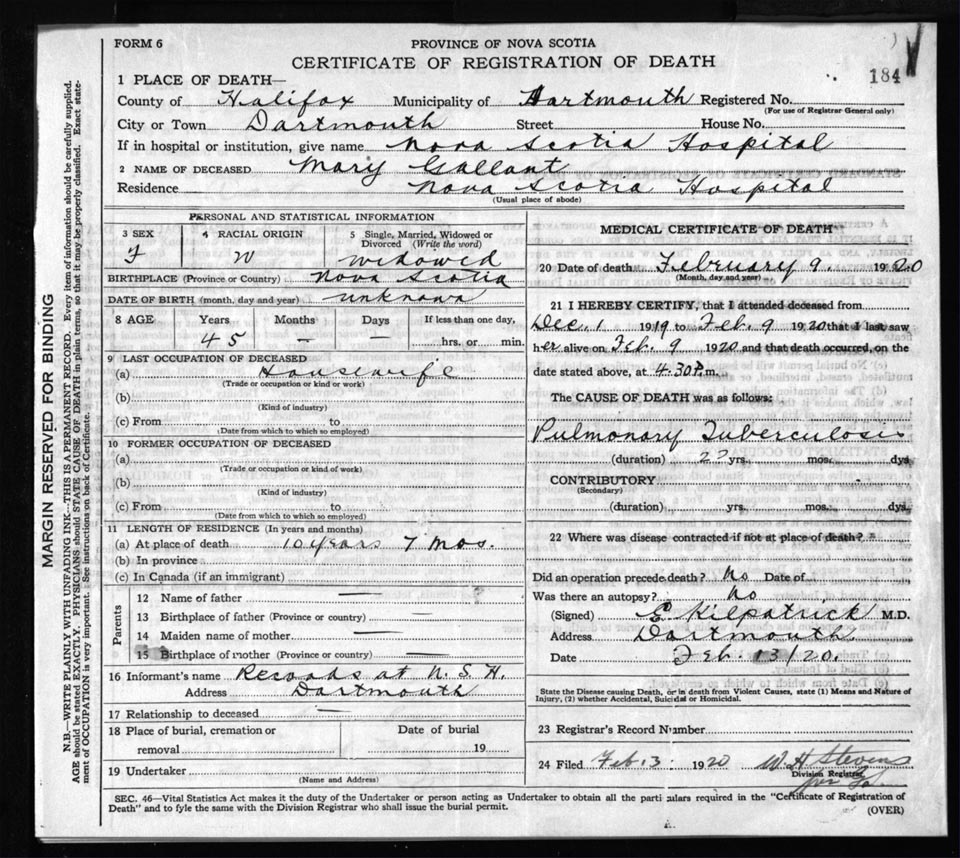 FORM 6
PROVINCE OF NOVA SCOTIA
CERTIFICATE OF REGISTRATION OF DEATH
184
1 PLACE OF DEATH—
County of Halifax Municipality of Dartmouth Registered No.
(For use of Registrar General only)
City or Town Dartmouth Street House No.
If in hospital or institution, give name Nova Scotia Hospital
2 NAME OF DECEASED Mary Gallant
Residence Nova Scotia Hospital
(Usual place of abode)
PERSONAL AND STATISTICAL INFORMATION
3 SEX 4 RACIAL ORIGIN 5 Single, Married, Widowed or Divorced (Write the word)
F W widowed
BIRTHPLACE (Province or Country) Nova Scotia
DATE OF BIRTH (month, day and year) unknown
8 AGE Years Months Days If less than one day,
45 — — hrs. or min.
9 LAST OCCUPATION OF DECEASED
(a) Housewife
(Trade or occupation or kind or work)
(b)
(Kind of industry)
(c) From to
(Date from which to which so employed)
10 FORMER OCCUPATION OF DECEASED
(a)
(Trade or occupation or kind of work)
(b)
(Kind of industry)
(c) From to
(Date from which to which so employed)
11 LENGTH OF RESIDENCE (In years and months)
(a) At place of death 10 years 7 mos.
(b) In province
(c) In Canada (if an immigrant)
Parents
12 Name of father —
13 Birthplace of father (Province or country) —
14 Maiden name of mother —
15 Birthplace of mother (Province or country) —
16 Informant's name Records at N. S. H.
Address Dartmouth
17 Relationship to deceased —
18 Place of burial, cremation or removal Date of burial
19
19 Undertaker
(Name and Address)
MEDICAL CERTIFICATE OF DEATH
20 Date of death February 9 1920
(Month, day and year)
21 I HEREBY CERTIFY, that I attended deceased from
Dec. 1 1919 to Feb. 9 1920 that I last saw
her alive on Feb. 9 1920 and that death occurred, on the
date stated above, at 4.30 P.m.
The CAUSE OF DEATH was as follows:
Pulmonary Tuberculosis
(duration) yrs. mos. dys.
CONTRIBUTORY
(Secondary)
(duration) yrs. mos. dys.
22 Where was disease contracted if not at place of death?
Did an operation precede death? No Date of
Was there an autopsy? No
(Signed) E Kilpatrick M.D.
Address Dartmouth
Date Feb. 13/20.
State the Disease causing Death, or in death from Violent Causes, state (1) Means and Nature of
Injury, (2) whether Accidental, Suicidal or Homicidal.
23 Registrar's Record Number
24 Filed Feb 13 1920 W. H Stevens
Division Registrar
SEC. 46—Vital Statistics Act makes it the duty of the Undertaker or person acting as Undertaker to obtain all the particulars required in the "Certificate of Registration of
Death" and to fyle the same with the Division Registrar who shall issue the burial permit.
(OVER)
MARGIN RESERVED FOR BINDING
N.B.—WRITE PLAINLY WITH UNFADING INK—THIS IS A PERMANENT RECORD. Every item of information should be carefully supplied.
AGE should be stated EXACTLY. PHYSICIANS should STATE CAUSE OF DEATH in plain terms, so that it may be properly classified. Exact statement of OCCUPATION is very important. See instructions on back of Certificate.